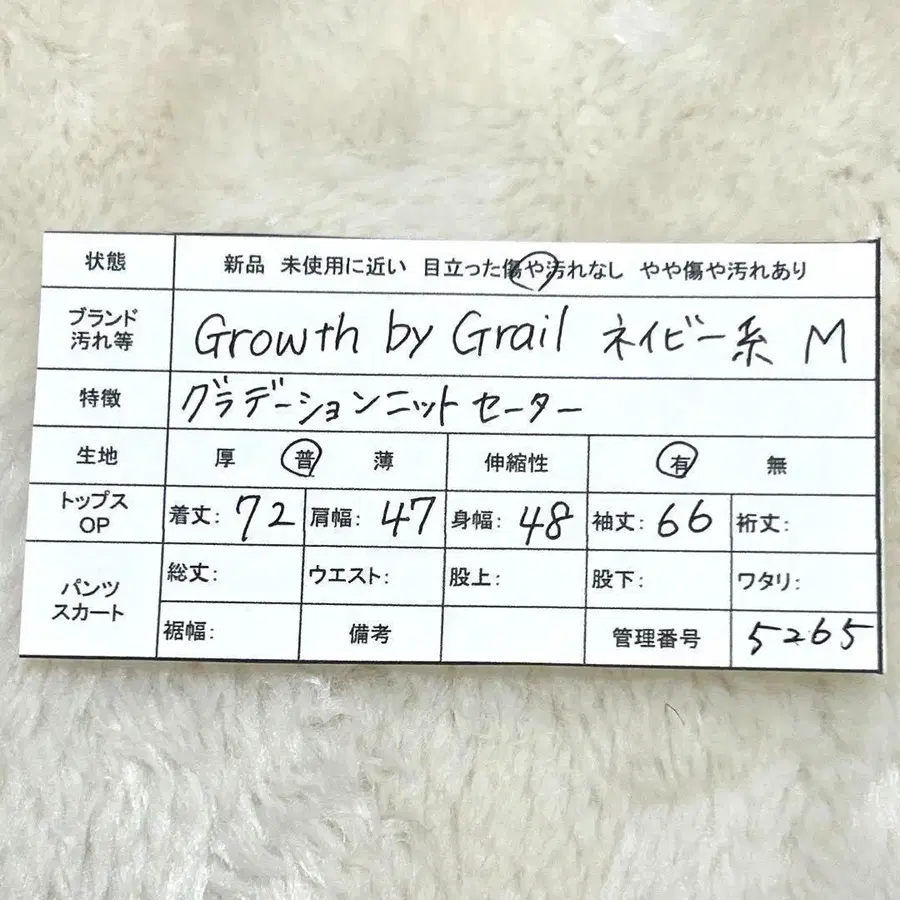 状態 新品 未使用に近い 目立った傷や汚れなし やや傷や汚れあり
ブランド 汚れ等 Growth by Grail ネイビー系 M
特徴 グラデーションニットセーター
生地 厚 普 薄 伸縮性 有 無
トップス OP 着丈: 72 肩幅: 47 身幅: 48 袖丈: 66 裄丈:
パンツ スカート 総丈: ウエスト: 股上: 股下: ワタリ:
裾幅: 備考 管理番号 5265